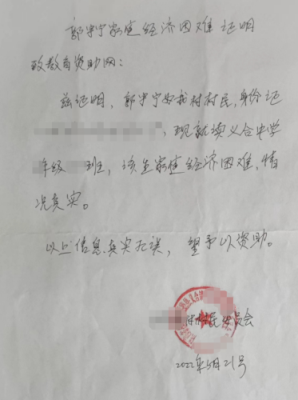 家庭经济困难证明
致教育资助网:
兹证明,郭 宁为我村村民,身份证
,现就读义合中学
年级 班,该生家庭经济困难,情
况真实。
以上信息真实无误,望予以资助。
村村民委员会
2022年4月21号